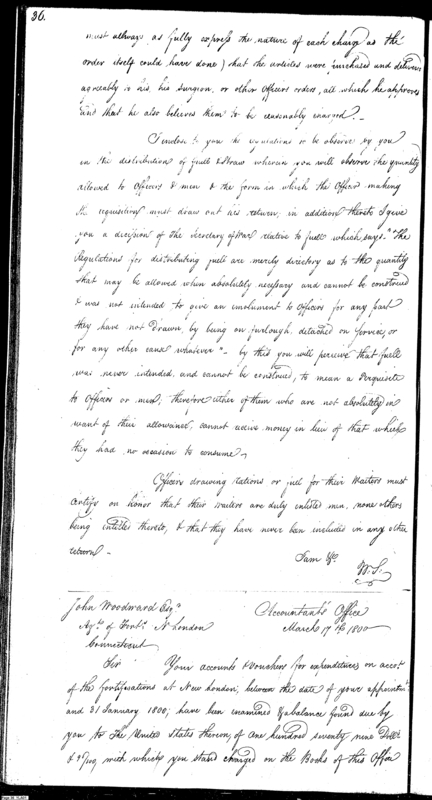 36.
must allways as fully express the nature of each charge as the
order itself could have done) that the articles were purchased and deliver
agreeably to his, his surgeon, or other Officers orders, all which he approves
and that he also believes them to be reasonably charged. —
I enclose to you the regulations to be observed by you
in the distribution of fuell & straw wherein you will observe the quantity
allowed to Officers & men & the form in which the Officer making
the requisition must draw out his return, in addition thereto I give
you a decission of the Secretary of War relative to fuell which says "The
Regulations for distributing fuell are merely directory as to the quantity
that may be allowed when absolutely necessary and cannot be construed
& was not intended to give an emolument to Officers for any part
they have not drawn, by being on furlough, detached on Service, or
for any other cause whatever" — by this you will perceive that fuell
was never intended, and cannot be construed, to mean a Perquisite
to Officers or men, therefore either of them who are not absolutely in
want of their allowance, cannot receive money in lieu of that which
they had no occasion to consume,
Officers drawing rations or fuel for their Waiters must
certify on honor that their waiters are duly enlisted men, none others
being entitled thereto, & that they have never been included in any other
return —
I am &c.
W. S.
John Woodward Esqr.
Agt. of Fort. N London
Connecticut
Accountant's Office
March 17th 1800
Sir Your accounts & vouchers for expenditures on accot.
of the fortifications at New London, between the date of your appointmt.
and 31 January 1800, have been examined & a balance found due by
you to the United States thereon, of One hundred seventy nine Dolls.
& /100, with which you stand charged on the Books of this Office